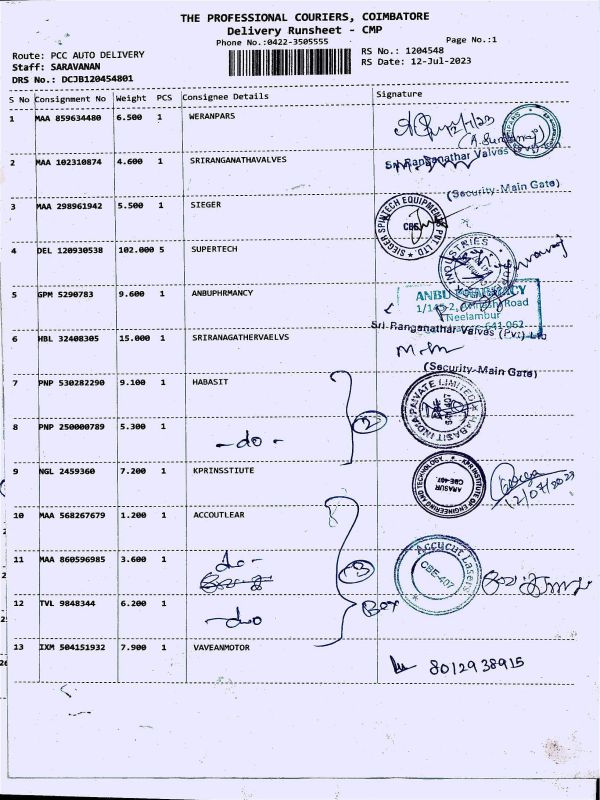 THE PROFESSIONAL COURIERS, COIMBATORE
Delivery Runsheet - CMP
Phone No.:0422-3505555
Page No.:1
Route: PCC AUTO DELIVERY
RS No.: 1204548
Staff: SARAVANAN
RS Date: 12-Jul-2023
DRS No.: DCJB120454801
S No Consignment No Weight PCS Consignee Details Signature
1 MAA 859634480 6.500 1 WERANPARS
2 MAA 102310874 4.600 1 SRIRANGANATHAVALVES
Sri Ranganathar Valves
(Security-Main Gate)
3 MAA 298961942 5.500 1 SIEGER
SIEGER SPINTECH EQUIPMENTS PVT. LTD
CBE
4 DEL 120930538 102.000 5 SUPERTECH
INDUSTRIES
5 GPM 5290783 9.600 1 ANBUPHRMANCY
ANBU PHARMACY
Road
Neelambur
641 062
6 HBL 32408305 15.000 1 SRIRANAGATHERVAELVS
Sri Ranganathar Valves (Pvt) Ltd
(Security-Main Gate)
7 PNP 530282290 9.100 1 HABASIT
HABASIT INDIA PRIVATE LIMITED
2
8 PNP 250000789 5.300 1
-do-
9 NGL 2459360 7.200 1 KPRINSSTIUTE
KPR INSTITUTE OF ENGINEERING AND TECHNOLOGY
ARASUR
CBE-407.
12/07/2023
10 MAA 568267679 1.200 1 ACCOUTLEAR
11 MAA 860596985 3.600 1
do-
3
Accucut Lasers
CBE-407
12 TVL 9848344 6.200 1
-do
Box
13 IXM 504151932 7.900 1 VAVEANMOTOR
8012938915